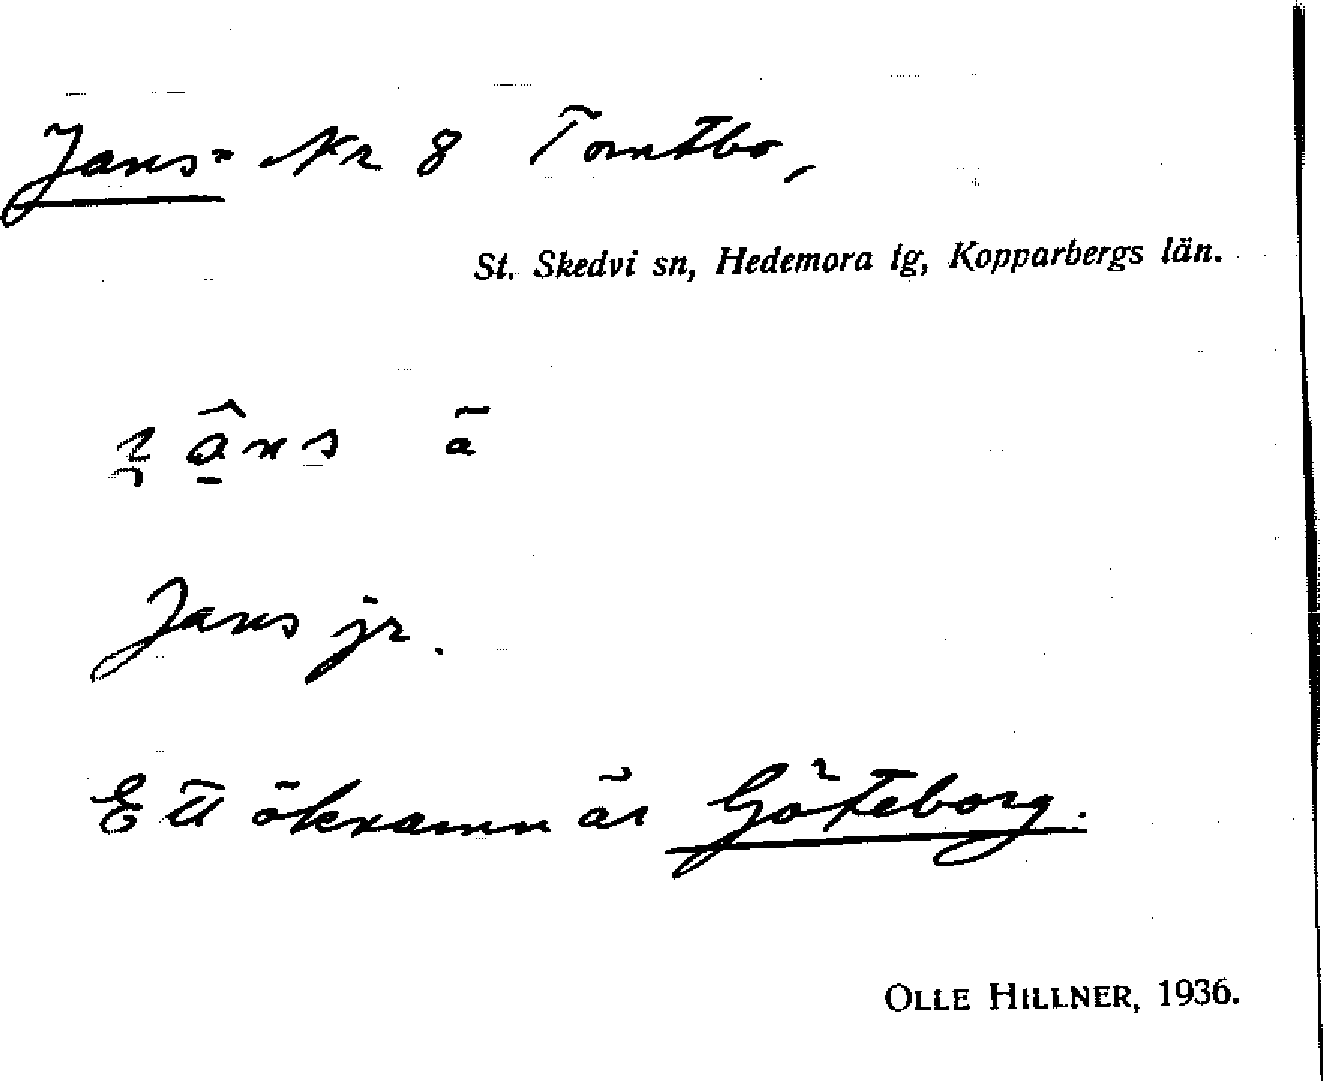 Jans- Nr 8 Tomtbo,
St. Skedvi sn, Hedemora tg, Kopparbergs län.
Jans jr.
Ett öknamn är Göteborg.
OLLE HILLNER, 1936.